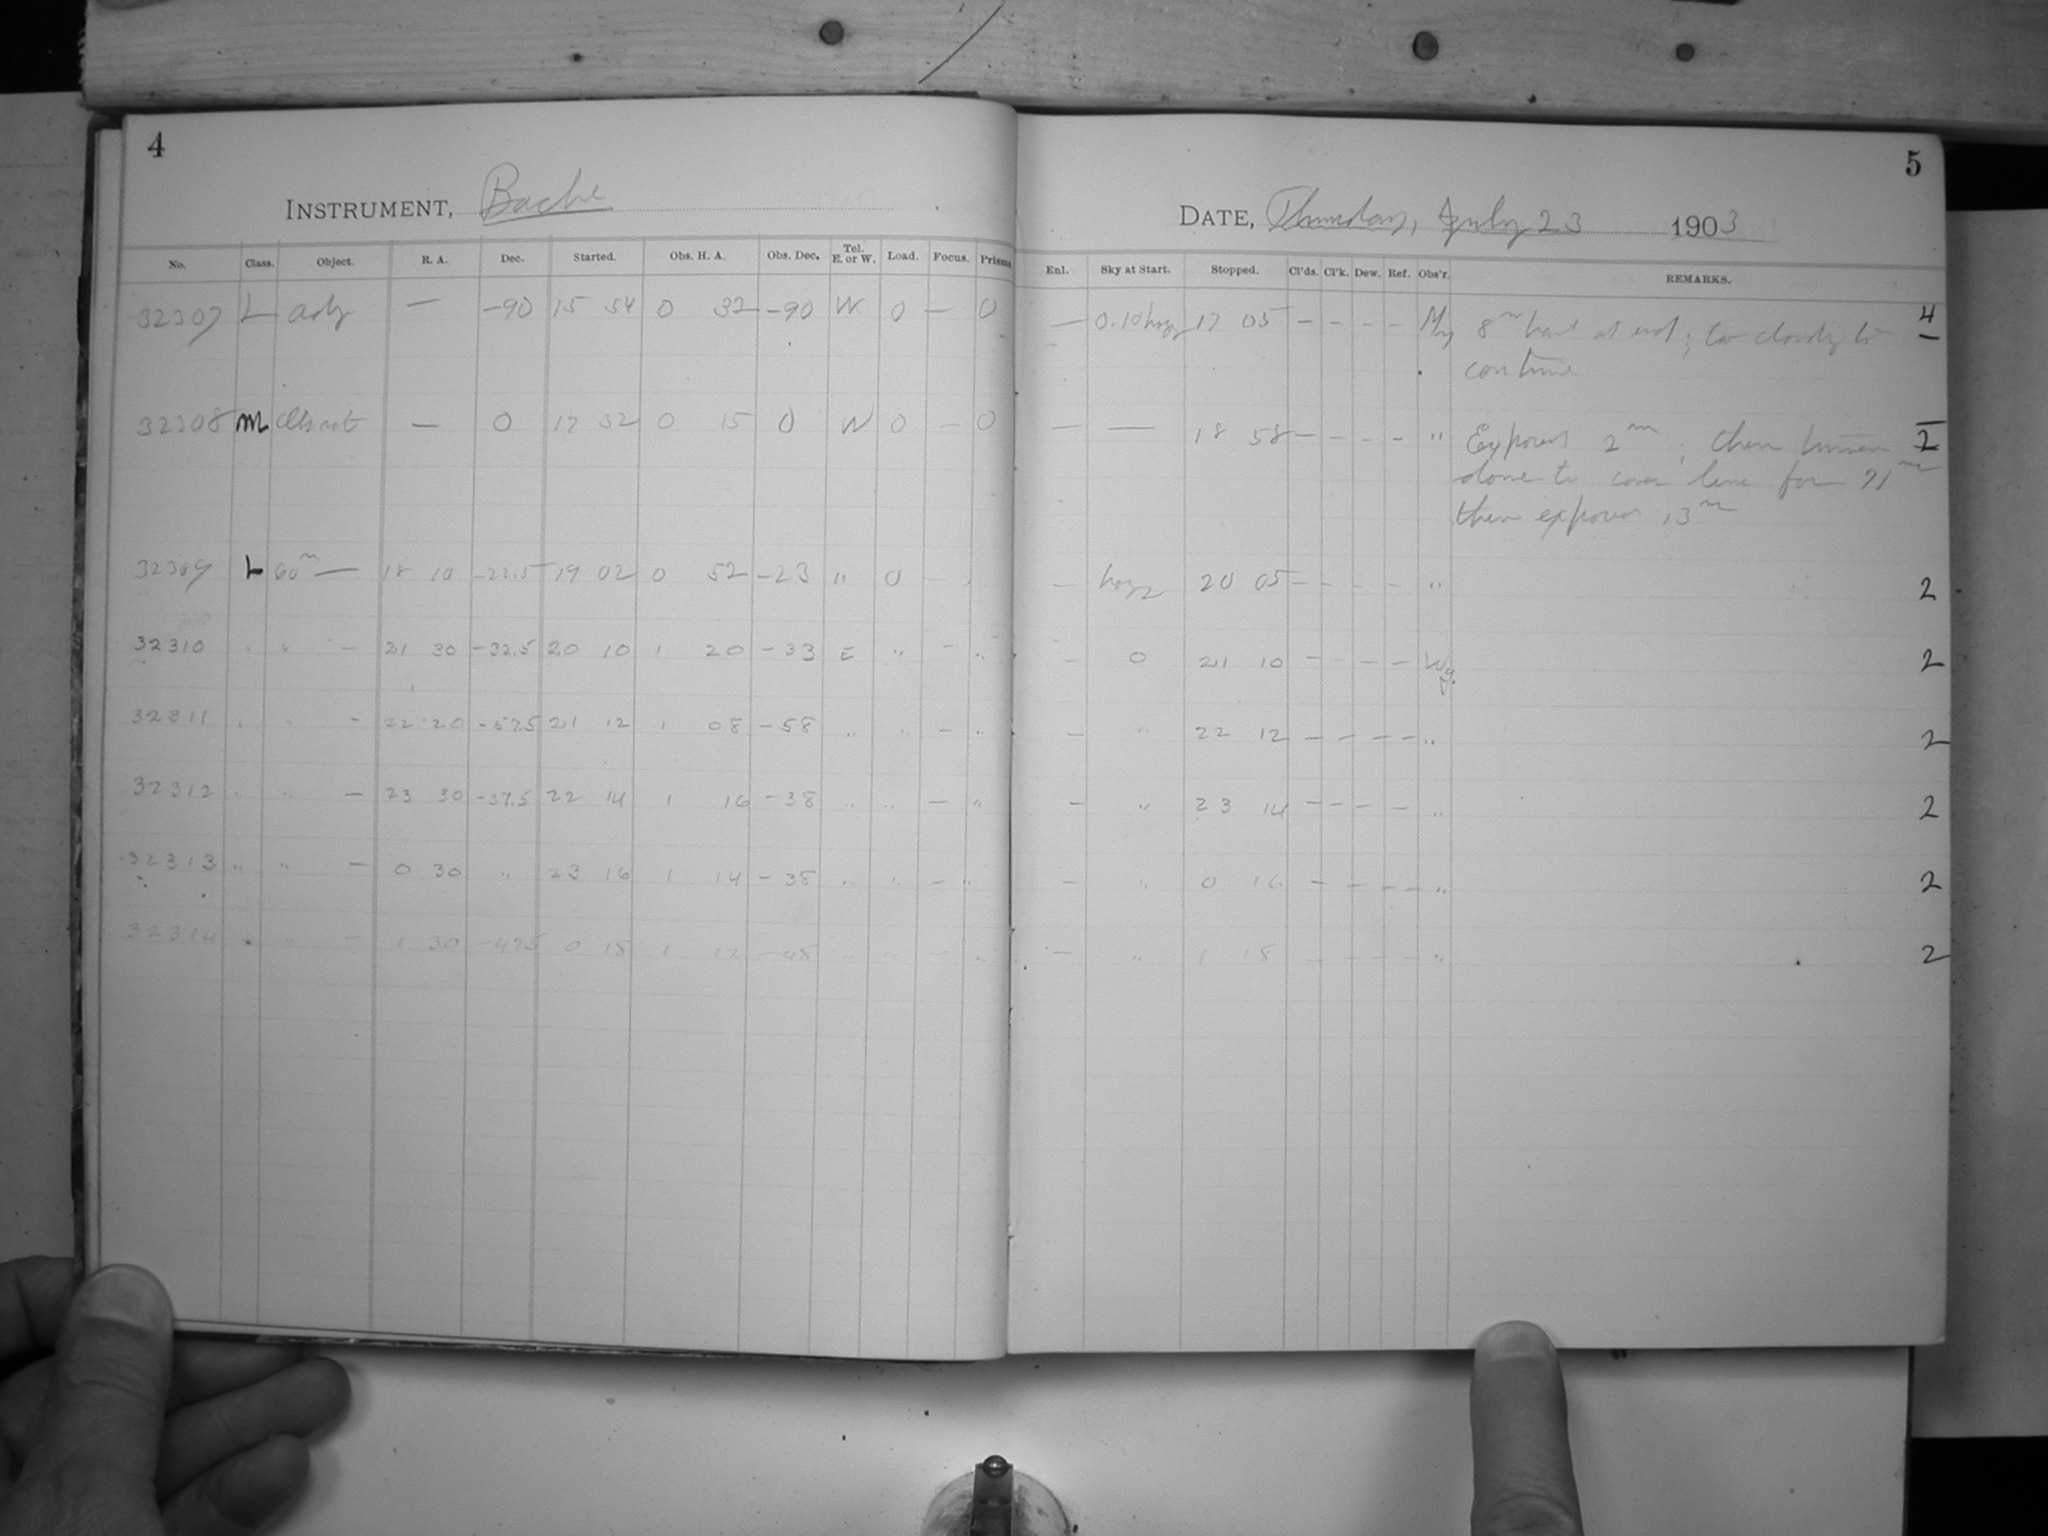 4
INSTRUMENT, Bache
No. Class. Object. R. A. Dec. Started. Obs. H. A. Obs. Dec. Tel. E. or W. Load. Focus. Prisms
32307 L Adj — -90 15 54 0 32 -90 W 0 — 0
32308 M — 0 17 32 0 15 0 W 0 - 0
32309 L 60m — 18 10 -22.5 19 02 0 52 -23 " 0 -
32310 " " - 21 30 -32.5 20 10 1 20 -33 E " - "
32311 " " - 22 20 -57.5 21 12 1 08 -58 " " - "
32312 " " - 23 30 -37.5 22 14 1 16 -38 " " - "
32313 " " - 0 30 " 23 16 1 14 -38 " " - "
32314 " " - 1 30 -47.5 0 18 1 12 -48 " " - "
5
DATE, Thursday, July 23 1903
Enl. Sky at Start. Stopped. Cl'ds. Cl'k. Dew. Ref. Obs'r. REMARKS.
— 0.10 hazy 17 05 - - - - 8m at end; too cloudy to 4
continue
— — 18 58 - - - - " Exposed 2m; then turned 2
dome to cover lens for 71m
then exposed 13m
- hazy 20 05 - - - - " 2
- 0 21 10 - - - - Wg. 2
- " 22 12 - - - - " 2
- " 23 14 - - - - " 2
- " 0 16 - - - - " 2
- " 1 18 - - - - " 2